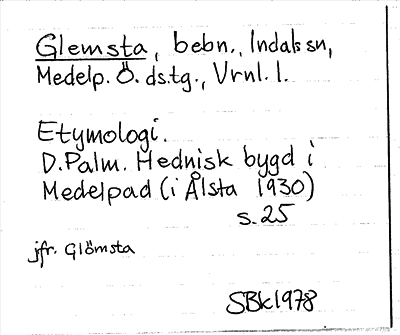 Glemsta, bebn., Indals sn,
Medelp. Ö. ds.tg., Vrnl. l.
Etymologi.
D. Palm. Hednisk bygd i
Medelpad (i Ålsta 1930)
s. 25
jfr. Glömsta
SBk 1978